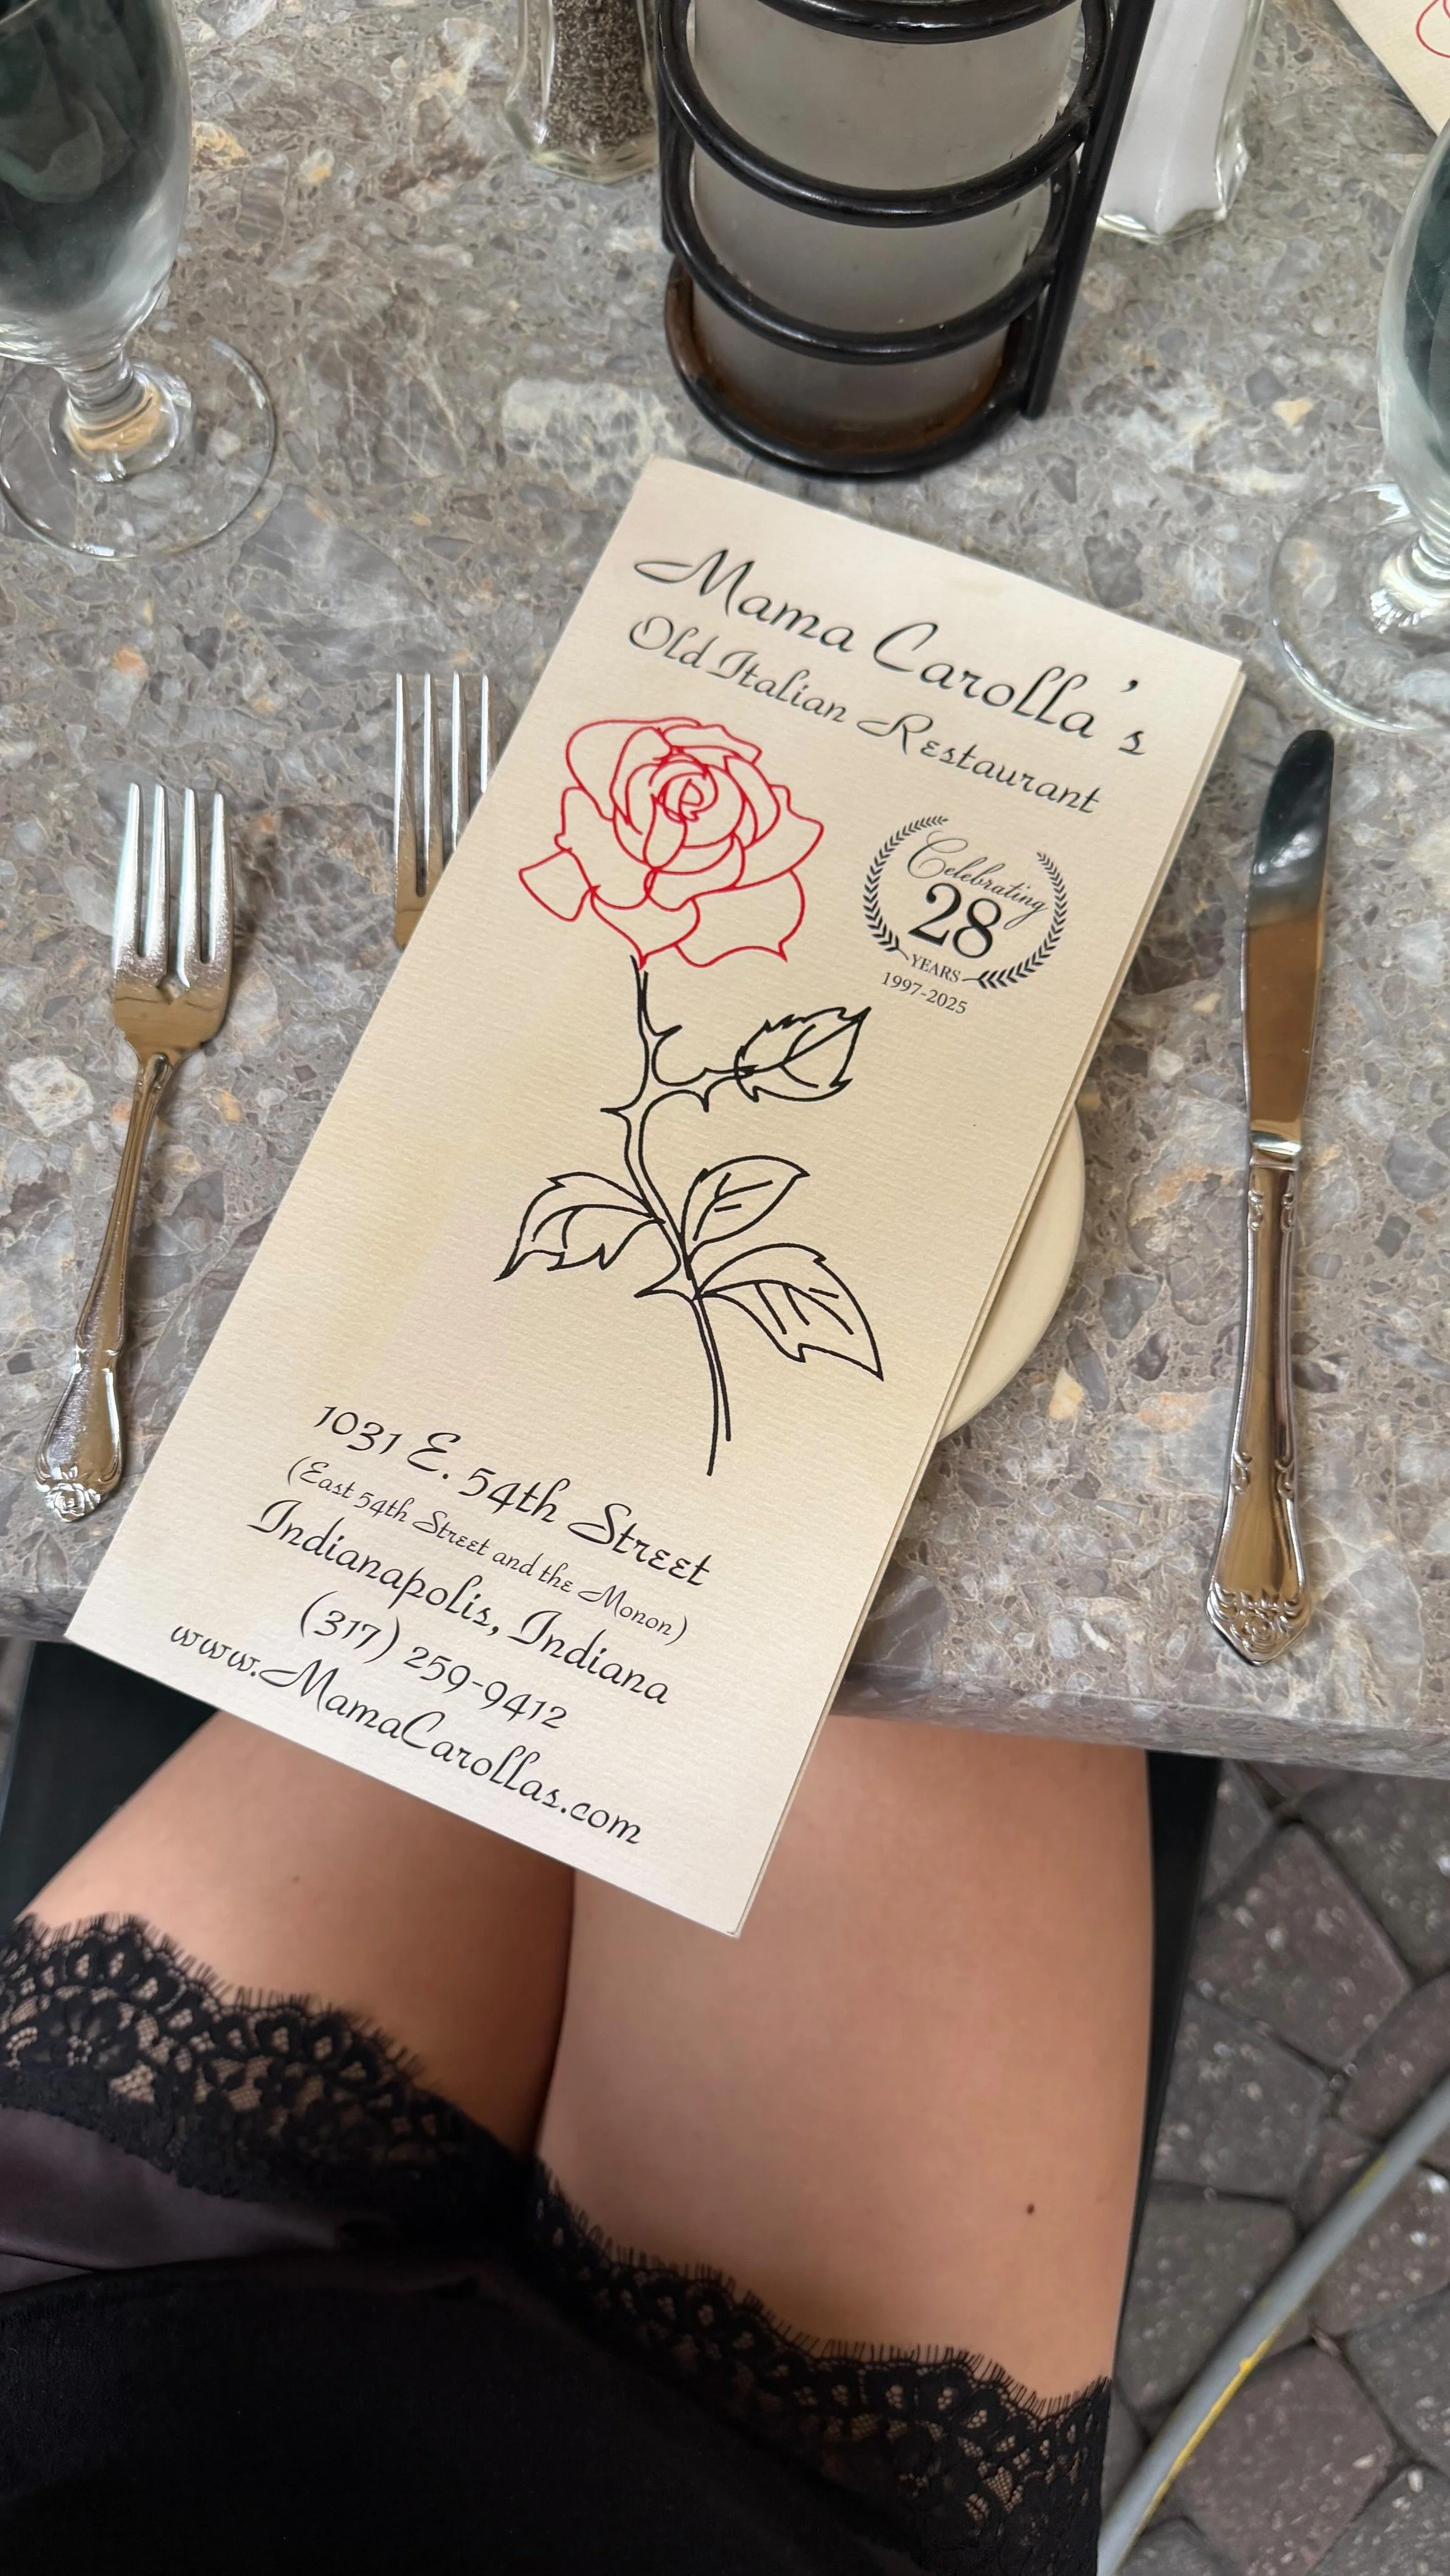 Mama Carolla's
Old Italian Restaurant
Celebrating
28
YEARS
1997-2025
1031 E. 54th Street
(East 54th Street and the Monon)
Indianapolis, Indiana
(317) 259-9412
www.MamaCarollas.com